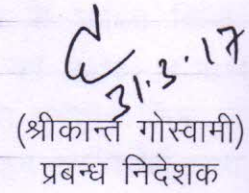 31.3.17
(श्रीकान्त गोस्वामी)
प्रबन्ध निदेशक